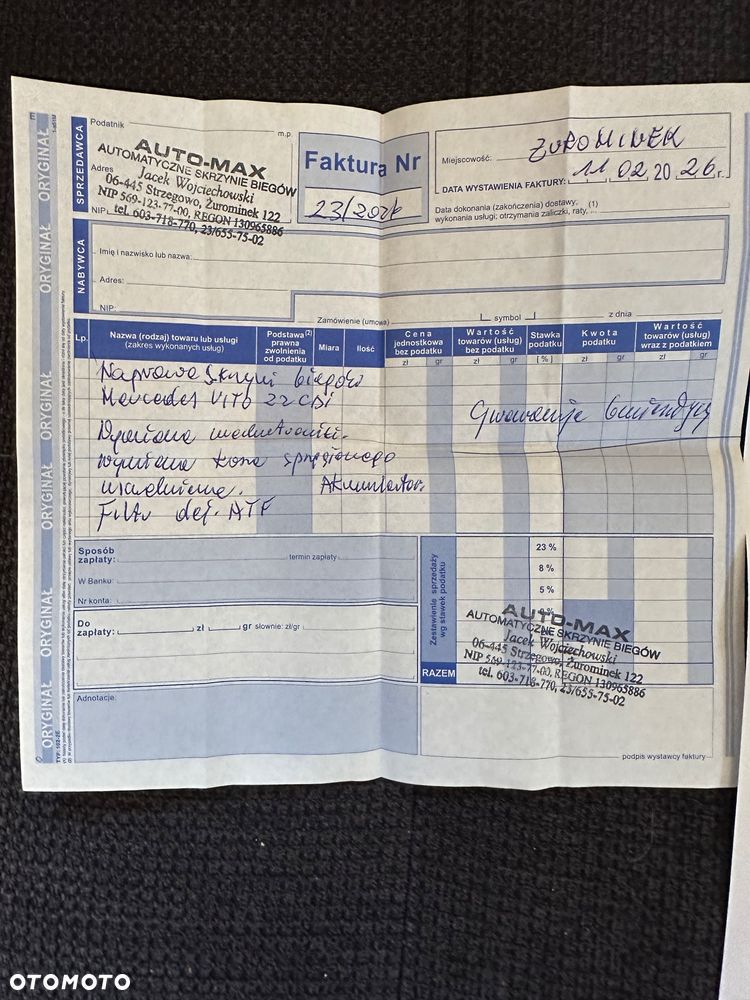 ORYGINAŁ ORYGINAŁ ORYGINAŁ ORYGINAŁ ORYGINAŁ ORYGINAŁ
SPRZEDAWCA
Podatnik
m.p.
Adres
NIP
AUTO-MAX
AUTOMATYCZNE SKRZYNIE BIEGÓW
Jacek Wojciechowski
06-445 Strzegowo, Żurominek 122
NIP 569-123-77-00, REGON 130965886
tel. 603-718-770, 23/655-75-02
Faktura Nr
23/2026
Miejscowość: ŻUROMINEK
DATA WYSTAWIENIA FAKTURY: 11 02.20 26 r.
Data dokonania (zakończenia) dostawy, (1)
wykonania usługi; otrzymania zaliczki, raty, ...
NABYWCA
Imię i nazwisko lub nazwa:
Adres:
NIP:
Zamówienie (umowa) symbol z dnia
Lp.
Nazwa (rodzaj) towaru lub usługi
(zakres wykonanych usług)
Podstawa (2)
prawna
zwolnienia
od podatku
Miara
Ilość
Cena
jednostkowa
bez podatku
Wartość
towarów (usług)
bez podatku
Stawka
podatku
Kwota
podatku
Wartość
towarów (usług)
wraz z podatkiem
zł gr zł gr [%] zł gr zł gr
Naprawa skrzyni biegów
Mercedes VITO 22 CDI
Gwarancja 6 miesięcy
Wymiana
wymiana kosza sprzęgłowego
Akumulator.
Filtr ATF
Sposób
zapłaty: termin zapłaty
W Banku:
Nr konta:
Do
zapłaty: zł gr słownie: zł/gr
Zestawienie sprzedaży
wg stawek podatku
23 %
8 %
5 %
RAZEM
AUTO-MAX
AUTOMATYCZNE SKRZYNIE BIEGÓW
Jacek Wojciechowski
06-445 Strzegowo, Żurominek 122
NIP 569-123-77-00, REGON 130965886
tel. 603-718-770, 23/655-75-02
Adnotacje:
podpis wystawcy faktury
OTOMOTO